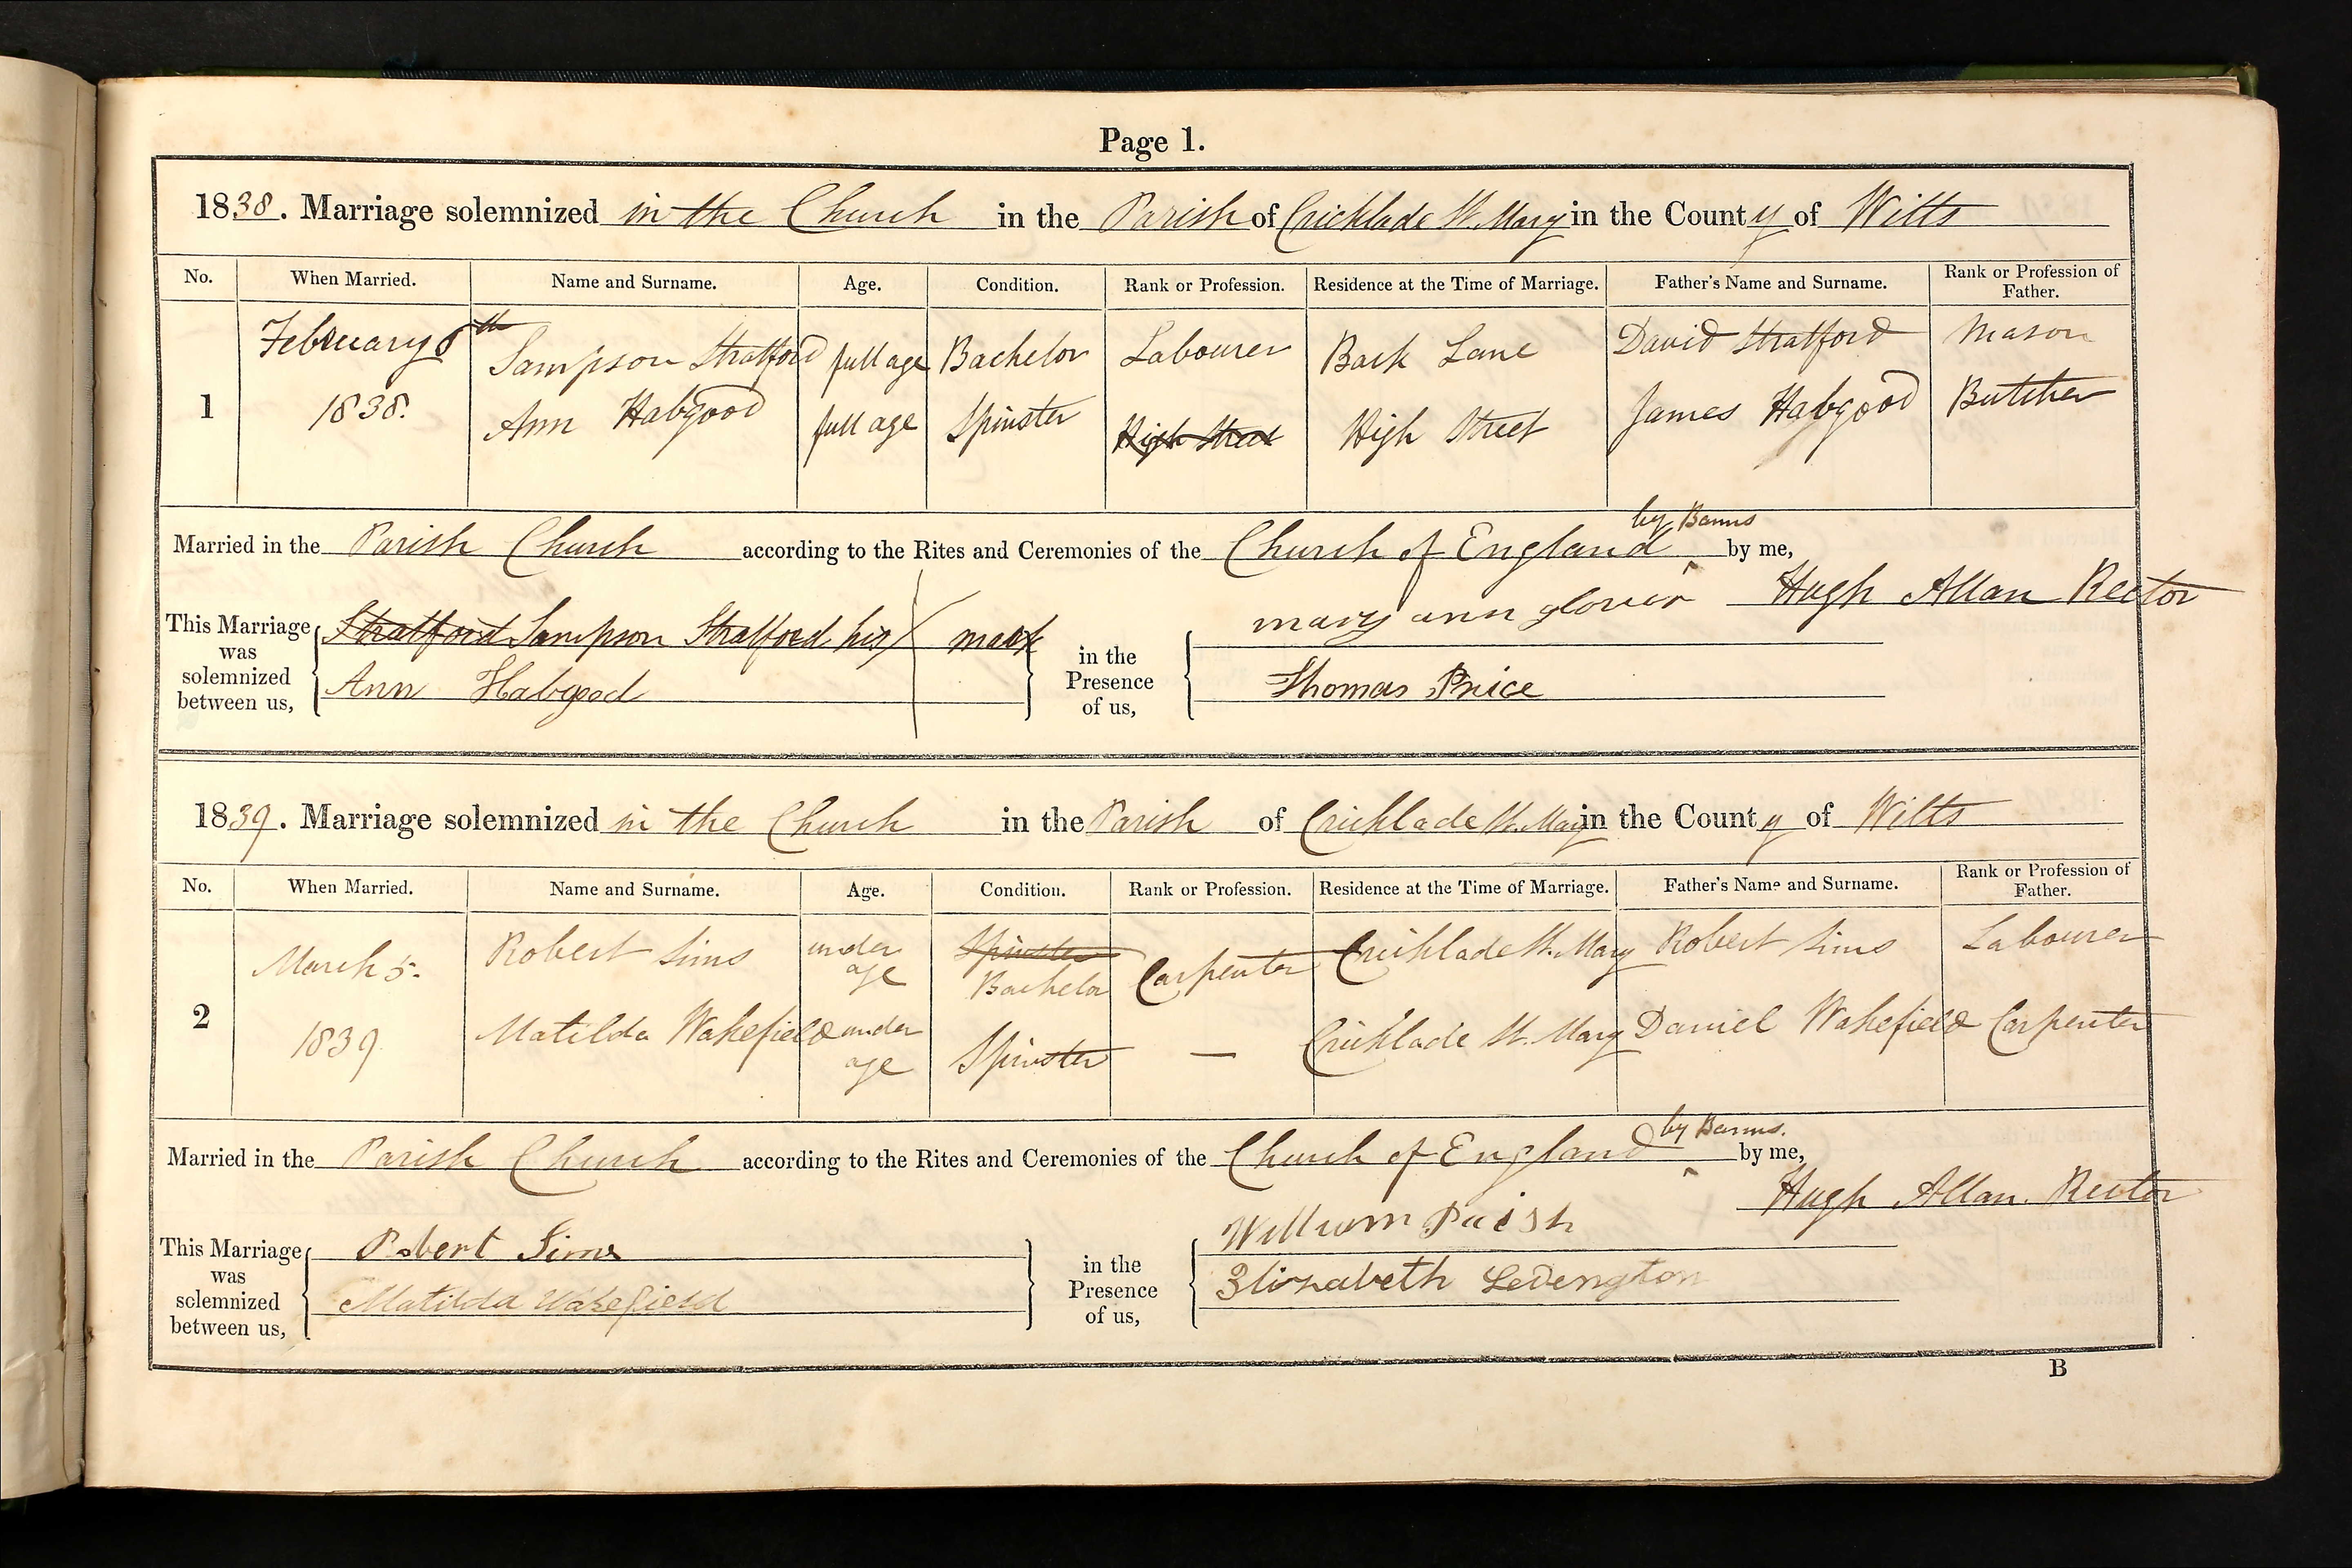 Page 1.
1838. Marriage solemnized in the Church in the Parish of Cricklade St. Mary in the County of Wilts
No. When Married. Name and Surname. Age. Condition. Rank or Profession. Residence at the Time of Marriage. Father's Name and Surname. Rank or Profession of Father.
1 February 8th 1838. Sampson Stratford full age Bachelor Labourer Back Lane David Stratford Mason
Ann Habgood full age Spinster High Street High Street James Habgood Butcher
Married in the Parish Church according to the Rites and Ceremonies of the Church of England by Banns by me,
Hugh Allan Rector
This Marriage was solemnized between us, Stratford Sampson Stratford his X mark
Ann Habgood
in the Presence of us, mary ann glover
Thomas Price
1839. Marriage solemnized in the Church in the Parish of Cricklade St. Mary in the County of Wilts
No. When Married. Name and Surname. Age. Condition. Rank or Profession. Residence at the Time of Marriage. Father's Name and Surname. Rank or Profession of Father.
2 March 5. 1839 Robert Sims under age Spinster Bachelor Carpenter Cricklade St. Mary Robert Sims Labourer
Matilda Wakefield under age Spinster — Cricklade St. Mary Daniel Wakefield Carpenter
Married in the Parish Church according to the Rites and Ceremonies of the Church of England by Banns. by me,
Hugh Allan. Rector
This Marriage was solemnized between us, Robert Sims
Matilda Wakefield
in the Presence of us, William
Elizabeth Ledengton
B